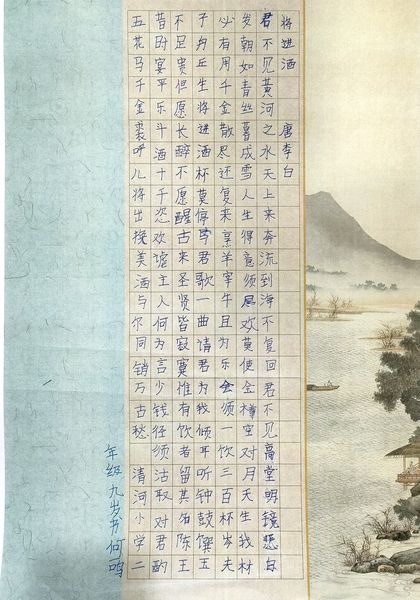 将进酒 唐李白
君不见黄河之水天上来奔流到海不复回君不见高堂明镜悲白
发朝如青丝暮成雪人生得意须尽欢莫使金樽空对月天生我材
必有用千金散尽还复来烹羊宰牛且为乐会须一饮三百杯岑夫
子丹丘生将进酒杯莫停与君歌一曲请君为我倾耳听钟鼓馔玉
不足贵但愿长醉不愿醒古来圣贤皆寂寞惟有饮者留其名陈王
昔时宴平乐斗酒十千恣欢谑主人何为言少钱径须沽取对君酌
五花马千金裘呼儿将出换美酒与尔同销万古愁 清河小学二
年级九岁书何鸣